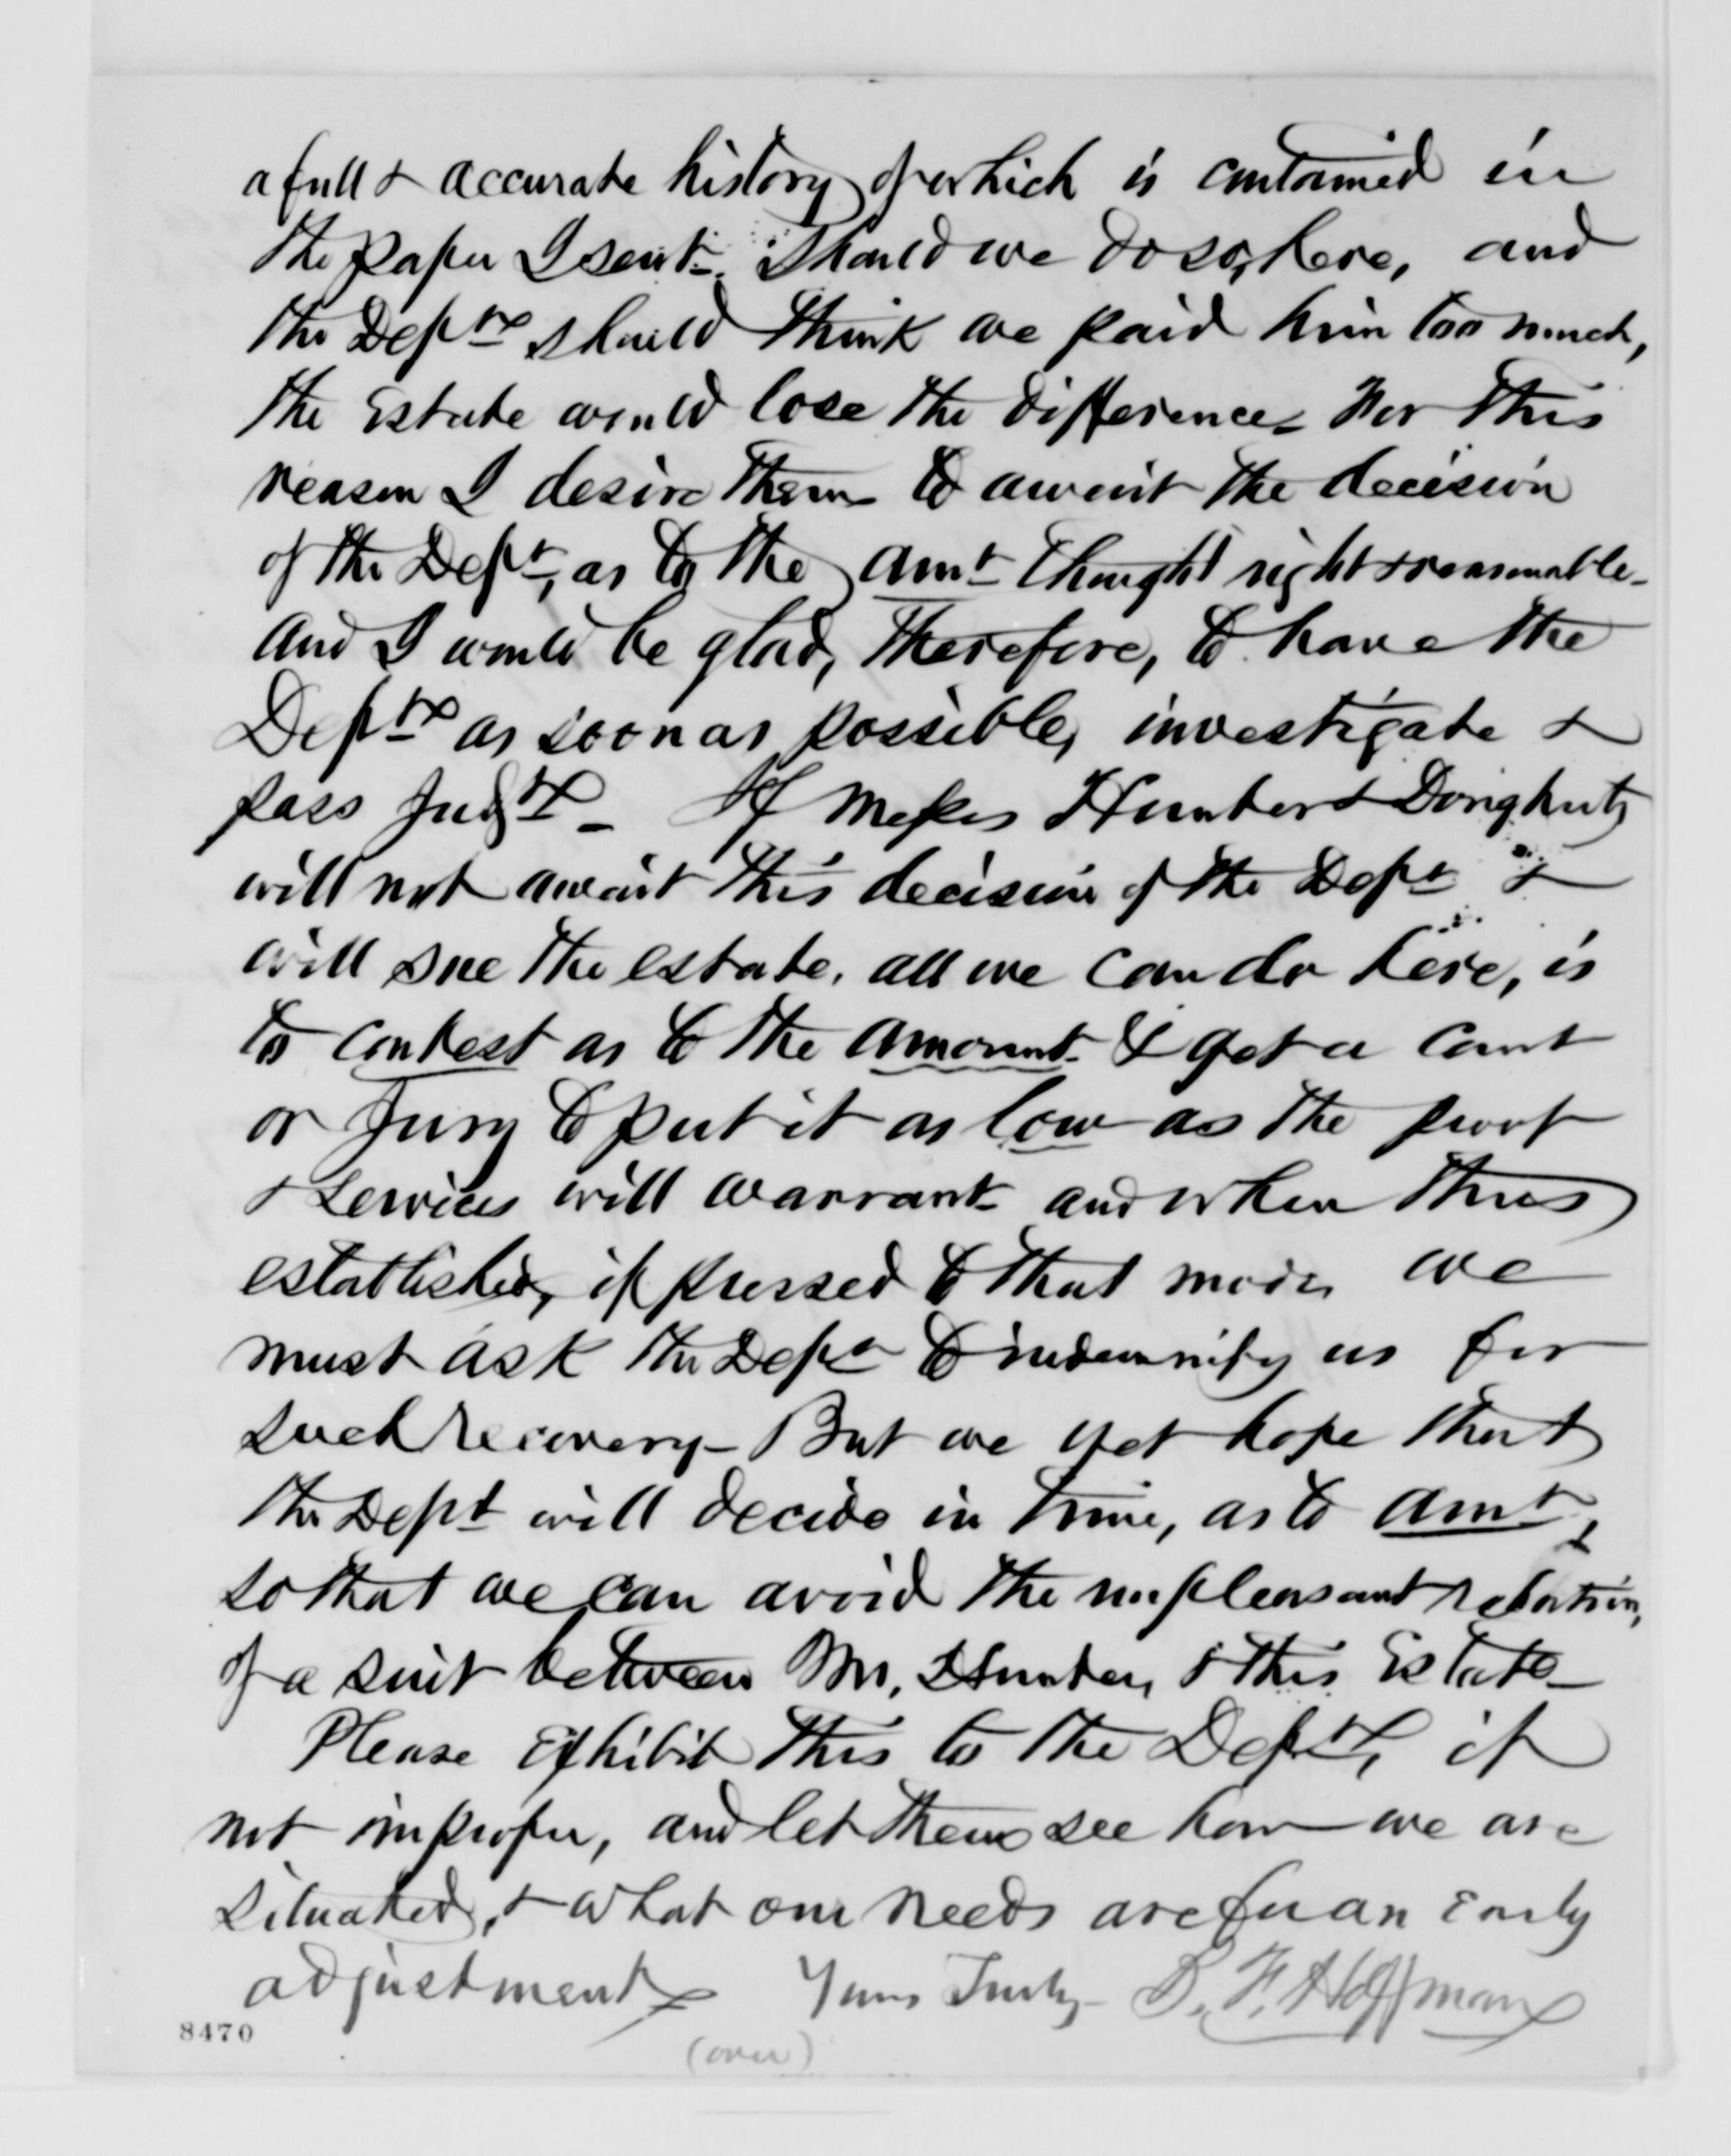 a full & accurate history of which is contained in
the paper I sent. Should we do so, here, and
the Dept. should think we paid him too much,
the Estate would lose the difference - For this
reason I desire them to await the decision
of the Dept, as to the amt thought right & reasonable -
and I would be glad, therefore, to have the
Dept. as soon as possible, investigate &
pass Judgt. - If Messrs Hunter & Dougherty
will not await this decision of the Dept &
will sue the estate, all we can do here, is
to contest as to the amount & get a Court
or Jury to put it as low as the proof
& services will warrant and when thus
established, if pressed to that mode, we
must ask the Dept to indemnify us for
such recovery - But we yet hope that
the Dept will decide in time, as to amt,
so that we can avoid the unpleasant
of a suit between Mr. Hunter, & this Estate -
Please Exhibit this to the Dept, if
not improper, and let them see how we are
situated, & what our needs are for an Early
adjustment Yours Truly - B. F. Hoffman
(over)
8470